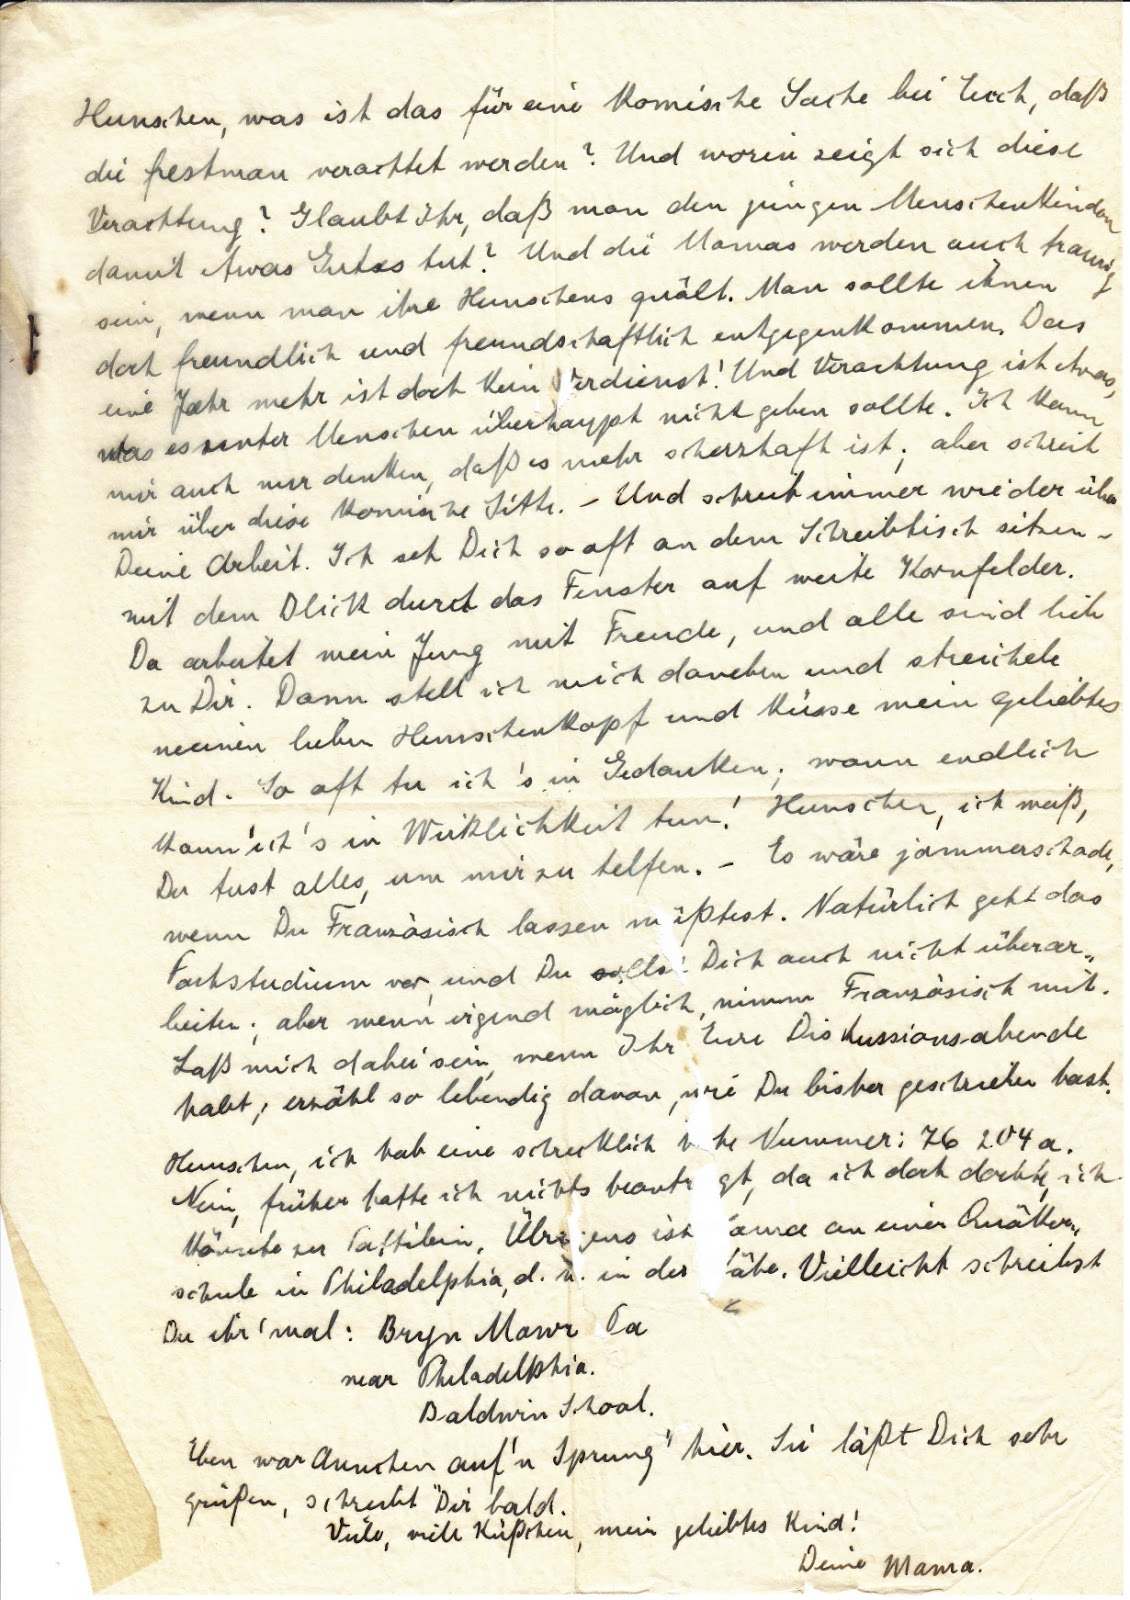 Hunschen, was ist das für eine komische Sache bei Euch, daß
die freshman verachtet werden? Und worin zeigt sich diese
Verachtung? Glaubt Ihr, daß man den jungen Menschenkindern
damit etwas Gutes tut? Und die Mamas werden auch traurig
sein, wenn man ihre Hunschens quält. Man sollte ihnen
doch freundlich und freundschaftlich entgegenkommen. Das
eine Jahr mehr ist doch kein Verdienst! Und Verachtung ist etwas,
was es unter Menschen überhaupt nicht geben sollte. Ich kann
mir auch nur denken, daß es mehr scherzhaft ist; aber schreib
mir über diese komische Sitte. – Und schreib immer wieder über
Deine Arbeit. Ich seh Dich so oft an dem Schreibtisch sitzen –
mit dem Blick durch das Fenster auf weite Kornfelder.
Da arbeitet mein Jung mit Freude, und alle sind lieb
zu Dir. Dann stell ich mich daneben und streichele
meinen lieben Hunschenkopf und küsse mein geliebtes
Kind. So oft tu ich's in Gedanken; wann endlich
kann ich's in Wirklichkeit tun! Hunschen, ich weiß,
Du tust alles, um mir zu helfen. – Es wäre jammerschade,
wenn Du Französisch lassen müßtest. Natürlich geht das
Fachstudium vor, und Du sollst Dich auch nicht überar-
beiten; aber wenn irgend möglich, nimm Französisch mit.
Laß mich dabei sein, wenn Ihr Eure Diskussionsabende
habt; erzähl so lebendig davon, wie Du bisher geschrieben hast.
Hunschen, ich hab eine schrecklich hohe Nummer: 76 204 a.
Nein, früher hatte ich nichts beantragt, da ich doch dachte, ich
könnte zu Pastilein. Übrigens ist an einer Quäker-
schule in Philadelphia, d. h. in der Nähe. Vielleicht schreibst
Du ihr 'mal: Bryn Mawr Pa
near Philadelphia.
Baldwin School.
Eben war Annchen auf'n Sprung" hier. Sie läßt Dich sehr
grüßen, schreibt Dir bald.
Viele, viele Küßchen, mein geliebtes Kind!
Deine Mama.